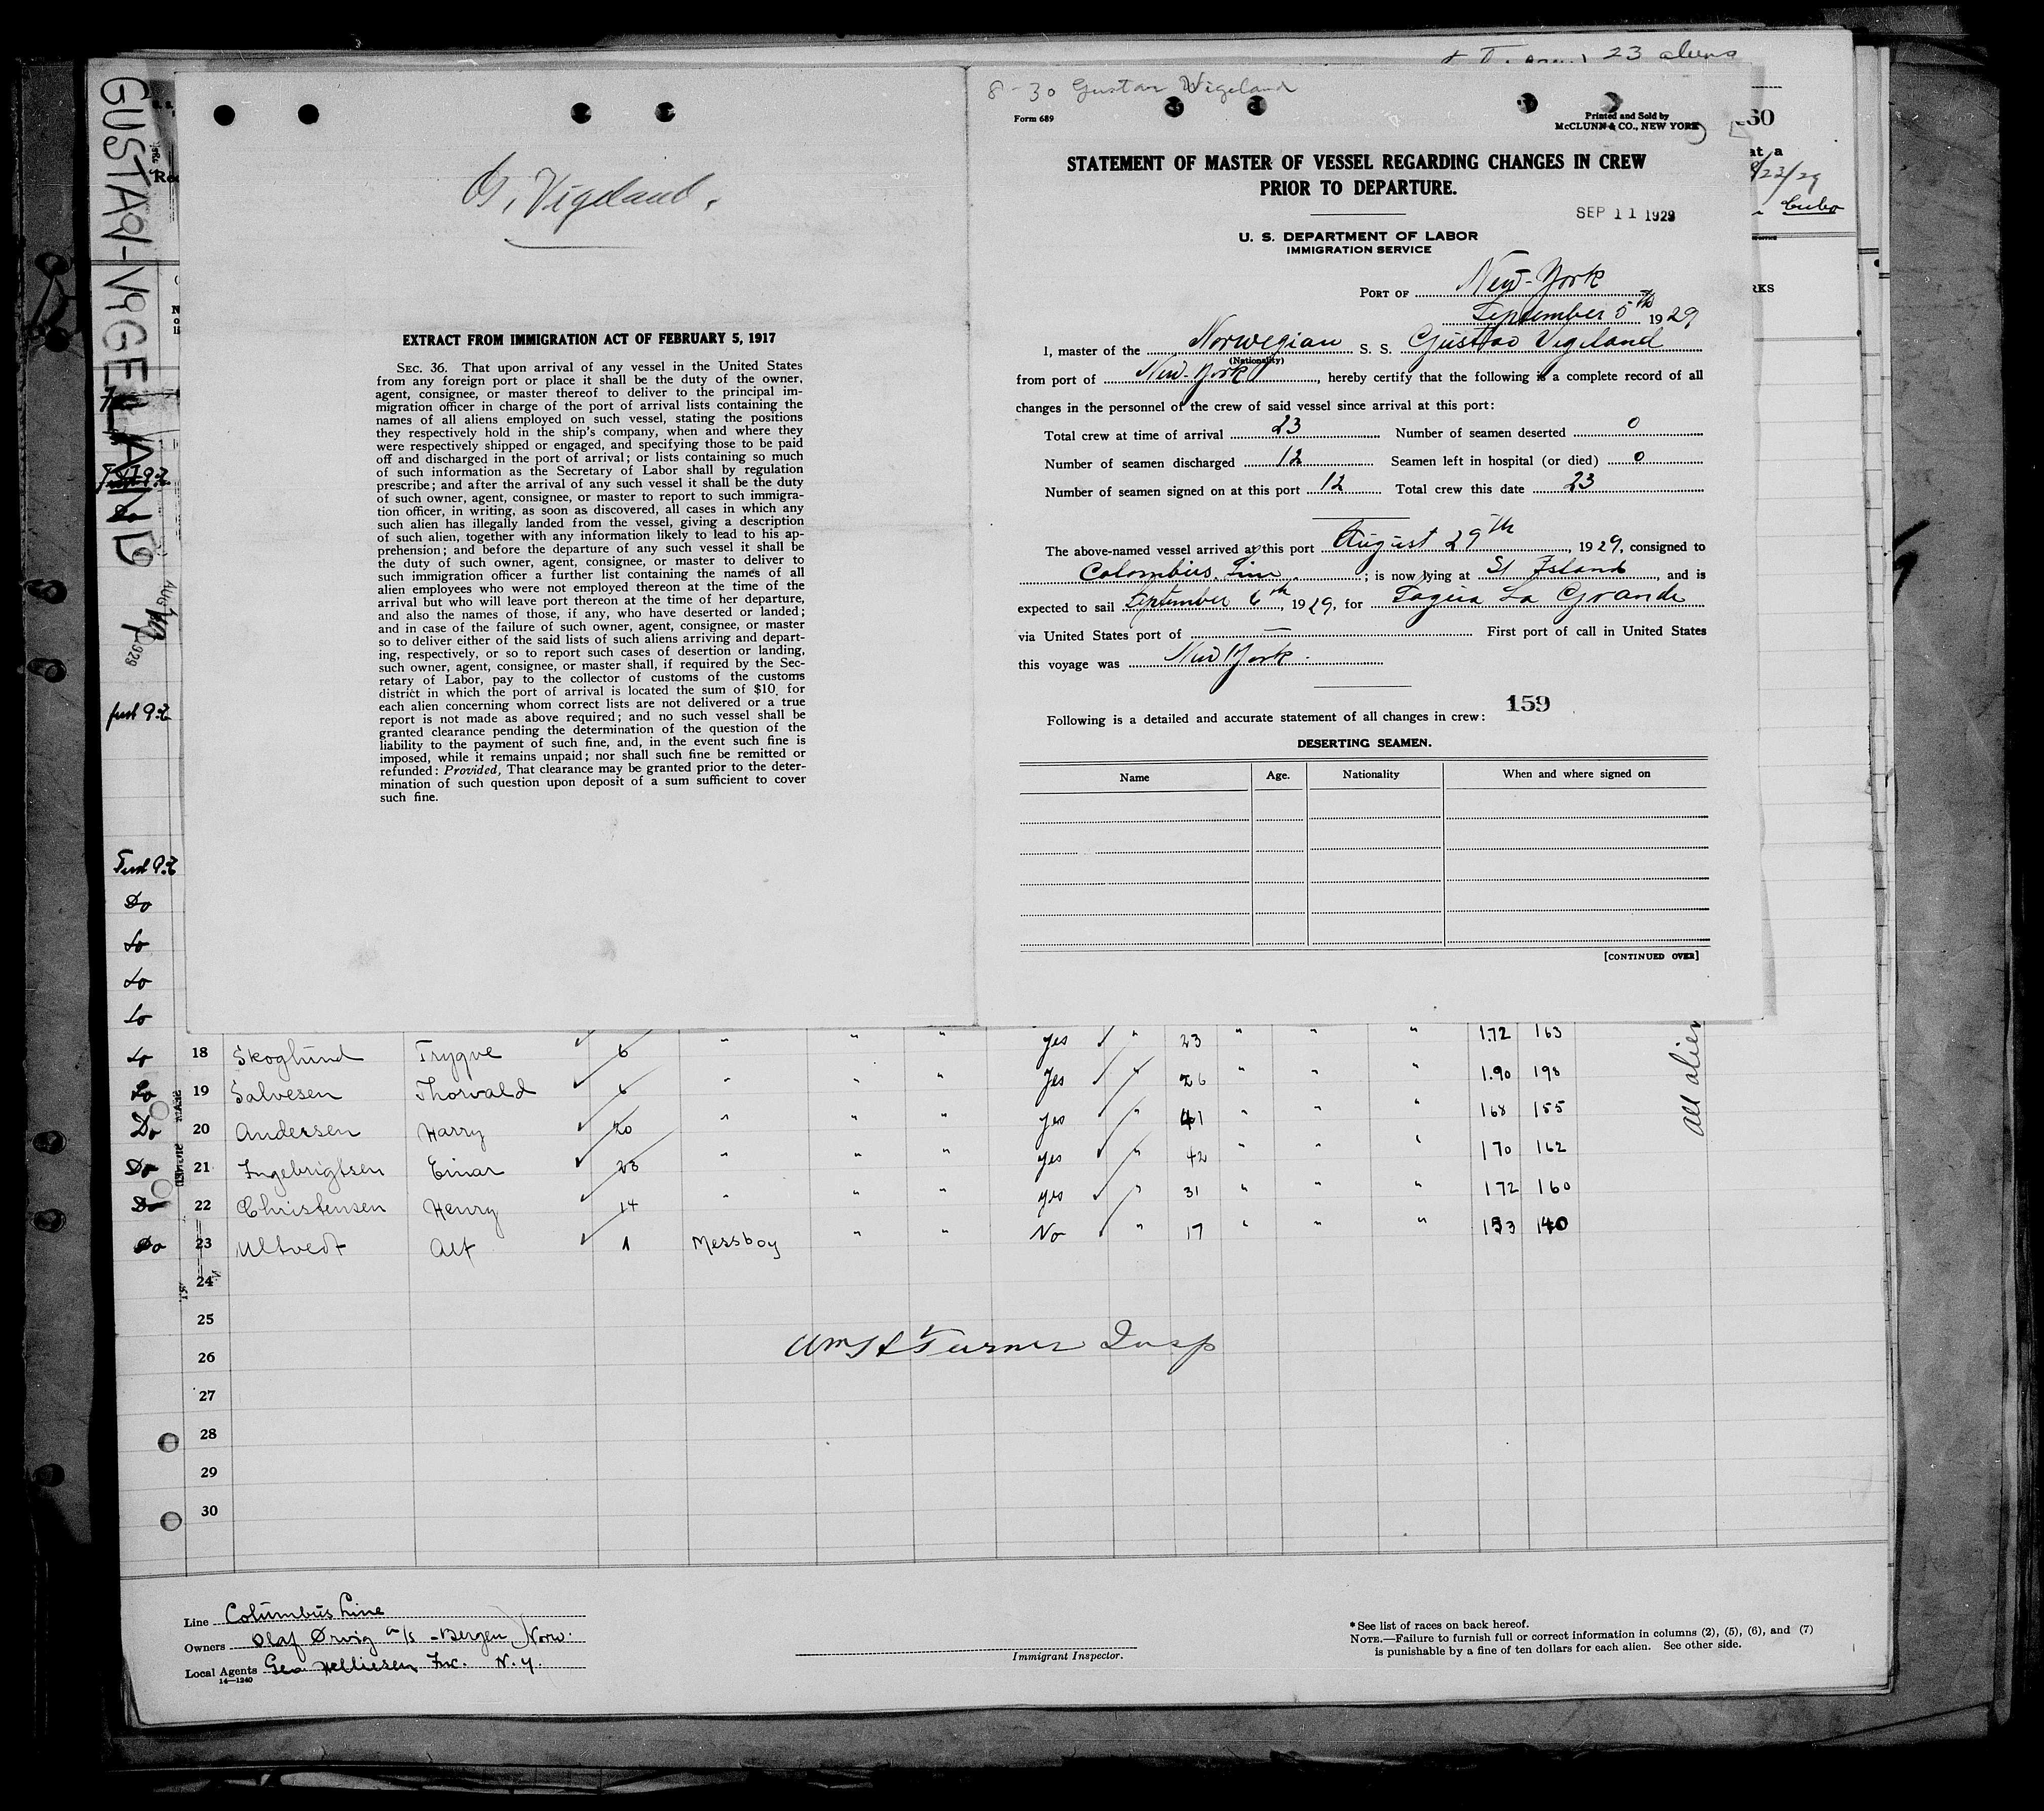 23 aliens
GUSTAV VIGELAND
G. Vigeland.
EXTRACT FROM IMMIGRATION ACT OF FEBRUARY 5, 1917
SEC. 36. That upon arrival of any vessel in the United States
from any foreign port or place it shall be the duty of the owner,
agent, consignee, or master thereof to deliver to the principal im-
migration officer in charge of the port of arrival lists containing the
names of all aliens employed on such vessel, stating the positions
they respectively hold in the ship's company, when and where they
were respectively shipped or engaged, and specifying those to be paid
off and discharged in the port of arrival; or lists containing so much
of such information as the Secretary of Labor shall by regulation
prescribe; and after the arrival of any such vessel it shall be the duty
of such owner, agent, consignee, or master to report to such immigra-
tion officer, in writing, as soon as discovered, all cases in which any
such alien has illegally landed from the vessel, giving a description
of such alien, together with any information likely to lead to his ap-
prehension; and before the departure of any such vessel it shall be
the duty of such owner, agent, consignee, or master to deliver to
such immigration officer a further list containing the names of all
alien employees who were not employed thereon at the time of the
arrival but who will leave port thereon at the time of her departure,
and also the names of those, if any, who have deserted or landed;
and in case of the failure of such owner, agent, consignee, or master
so to deliver either of the said lists of such aliens arriving and depart-
ing, respectively, or so to report such cases of desertion or landing,
such owner, agent, consignee, or master shall, if required by the Sec-
retary of Labor, pay to the collector of customs of the customs
district in which the port of arrival is located the sum of $10 for
each alien concerning whom correct lists are not delivered or a true
report is not made as above required; and no such vessel shall be
granted clearance pending the determination of the question of the
liability to the payment of such fine, and, in the event such fine is
imposed, while it remains unpaid; nor shall such fine be remitted or
refunded: Provided, That clearance may be granted prior to the deter-
mination of such question upon deposit of a sum sufficient to cover
such fine.
8-30 Gustav Vigeland
Form 689
Printed and Sold by
McCLUNN & CO., NEW YORK
STATEMENT OF MASTER OF VESSEL REGARDING CHANGES IN CREW
PRIOR TO DEPARTURE.
SEP 11 1929
U. S. DEPARTMENT OF LABOR
IMMIGRATION SERVICE
PORT OF New-York
September 5th 1929
I, master of the Norwegian S. S. Gustav Vigeland
(Nationality)
from port of New-York, hereby certify that the following is a complete record of all
changes in the personnel of the crew of said vessel since arrival at this port:
Total crew at time of arrival 23 Number of seamen deserted 0
Number of seamen discharged 12 Seamen left in hospital (or died) 0
Number of seamen signed on at this port 12 Total crew this date 23
The above-named vessel arrived at this port August 29th, 1929, consigned to
Colombus Line; is now lying at St Island, and is
expected to sail September 6th, 1929, for Sagua La Grande
via United States port of — First port of call in United States
this voyage was New York.
159
Following is a detailed and accurate statement of all changes in crew:
DESERTING SEAMEN.
Name Age. Nationality When and where signed on
[CONTINUED OVER]
18 Skoglund Trygve 6 " " " yes " 23 " " " 1.72 163
19 Salvesen Thorvald 6 " " " Yes " 26 " " " 1.90 198
20 Andersen Harry 20 " " " yes " 41 " " " 168 155
21 Ingebrigtsen Einar 23 " " " yes " 42 " " " 170 162
22 Christensen Henry 14 " " " yes " 31 " " " 172 160
23 Ultvedt Alf 1 Messboy " " No " 17 " " " 153 140
24
25
26
27
28
29
30
Turner Insp
Line Columbus Line
Owners Olaf Ørvig a/s - Bergen Norw.
Local Agents Geo Helliesen Inc. N.Y.
14—1240
Immigrant Inspector.
* See list of races on back hereof.
NOTE.—Failure to furnish full or correct information in columns (2), (5), (6), and (7)
is punishable by a fine of ten dollars for each alien. See other side.